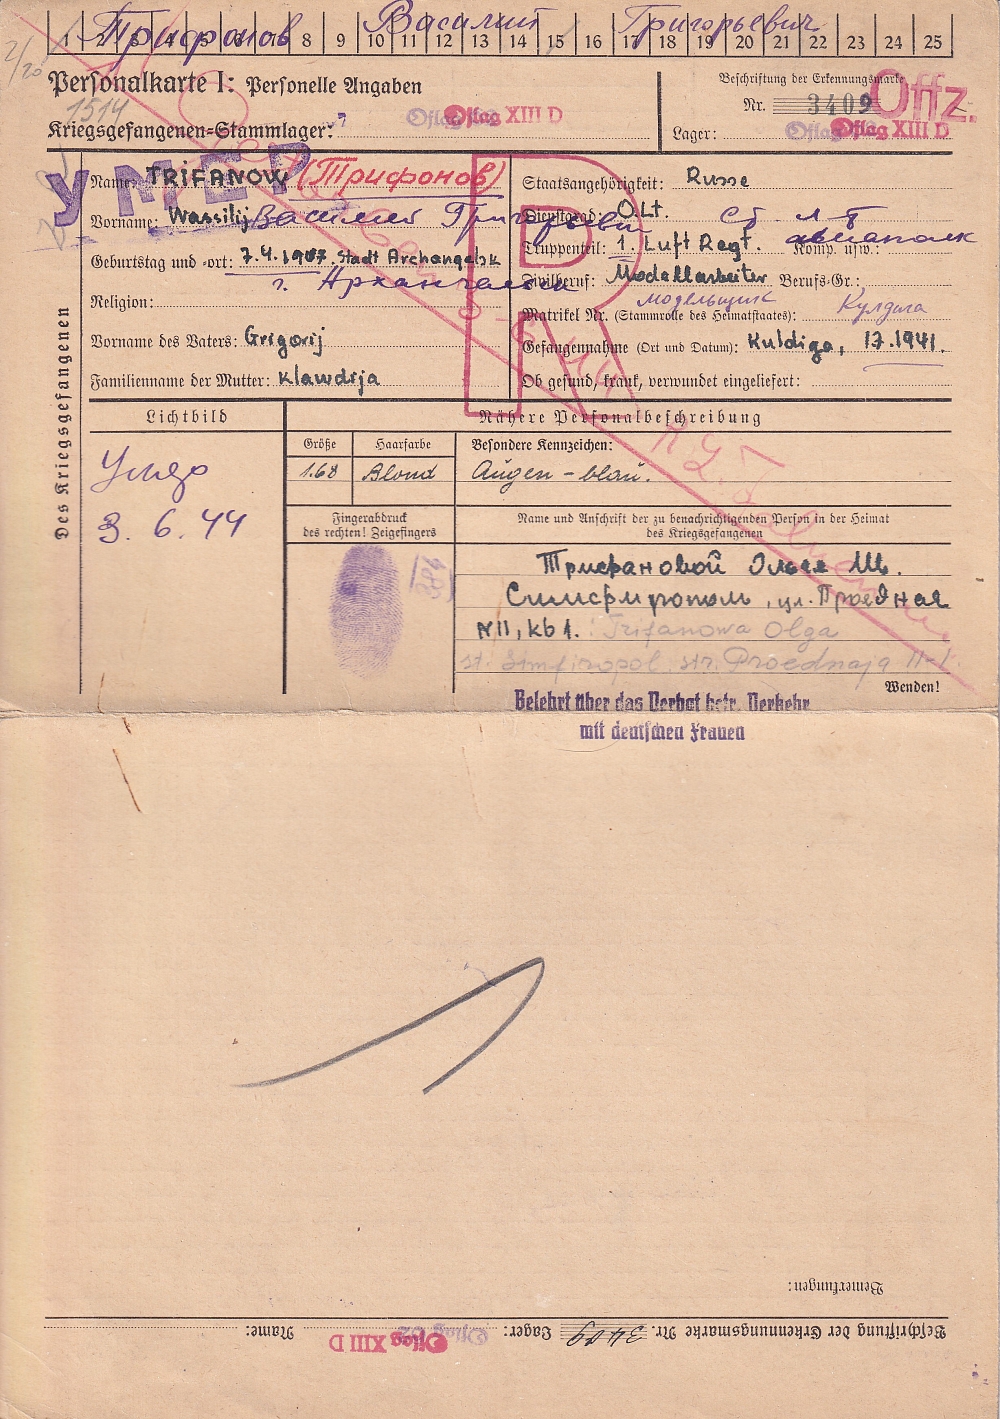 Трифонов Василий Григорьевич
1 2 3 4 5 6 7 8 9 10 11 12 13 14 15 16 17 18 19 20 21 22 23 24 25
2/20
Personalkarte I: Personelle Angaben
1514
Kriegsgefangenen-Stammlager: Oflag Oflag XIII D
Beschriftung der Erkennungsmarke
Nr. 3409
Offz.
Lager: Oflag Oflag XIII D
УМЕР
Des Kriegsgefangenen
Name: TRIFANOW (Трифонов)
Vorname: Wassilij Василий Григорьевич
Geburtstag und -ort: 7.4.1907. Stadt Archangelsk
г. Архангельск
Religion:
Vorname des Vaters: Grigorij
Familienname der Mutter: Klawdija
R
Staatsangehörigkeit: Russe
Dienstgrad: O.Lt. Ст. л-т
Truppenteil: 1. Luft Regt. Komp. usw.: авиаполк
Zivilberuf: Modellarbeiter Berufs-Gr.:
модельщик
Matrikel Nr. (Stammrolle des Heimatstaates): Кулдига
Gefangennahme (Ort und Datum): Kuldiga, 1.7.1941.
Ob gesund, krank, verwundet eingeliefert:
Lichtbild
Умер
3. 6. 44
Nähere Personalbeschreibung
Größe Haarfarbe Besondere Kennzeichen:
1.68 Blond Augen - blau.
Fingerabdruck
des rechten! Zeigefingers
Name und Anschrift der zu benachrichtigenden Person in der Heimat
des Kriegsgefangenen
Трифановой Ольге Ш.
Симфирополь, ул. Проездная
N 11, kb 1. Trifanowa Olga
st. Simfiropol, str. Proednaja 11-1.
Wenden!
Belehrt über das Verbot betr. Verkehr
mit deutschen Frauen
Bemerkungen:
Beschriftung der Erkennungsmarke Nr. 3409 Lager: Oflag Oflag XIII D Name: